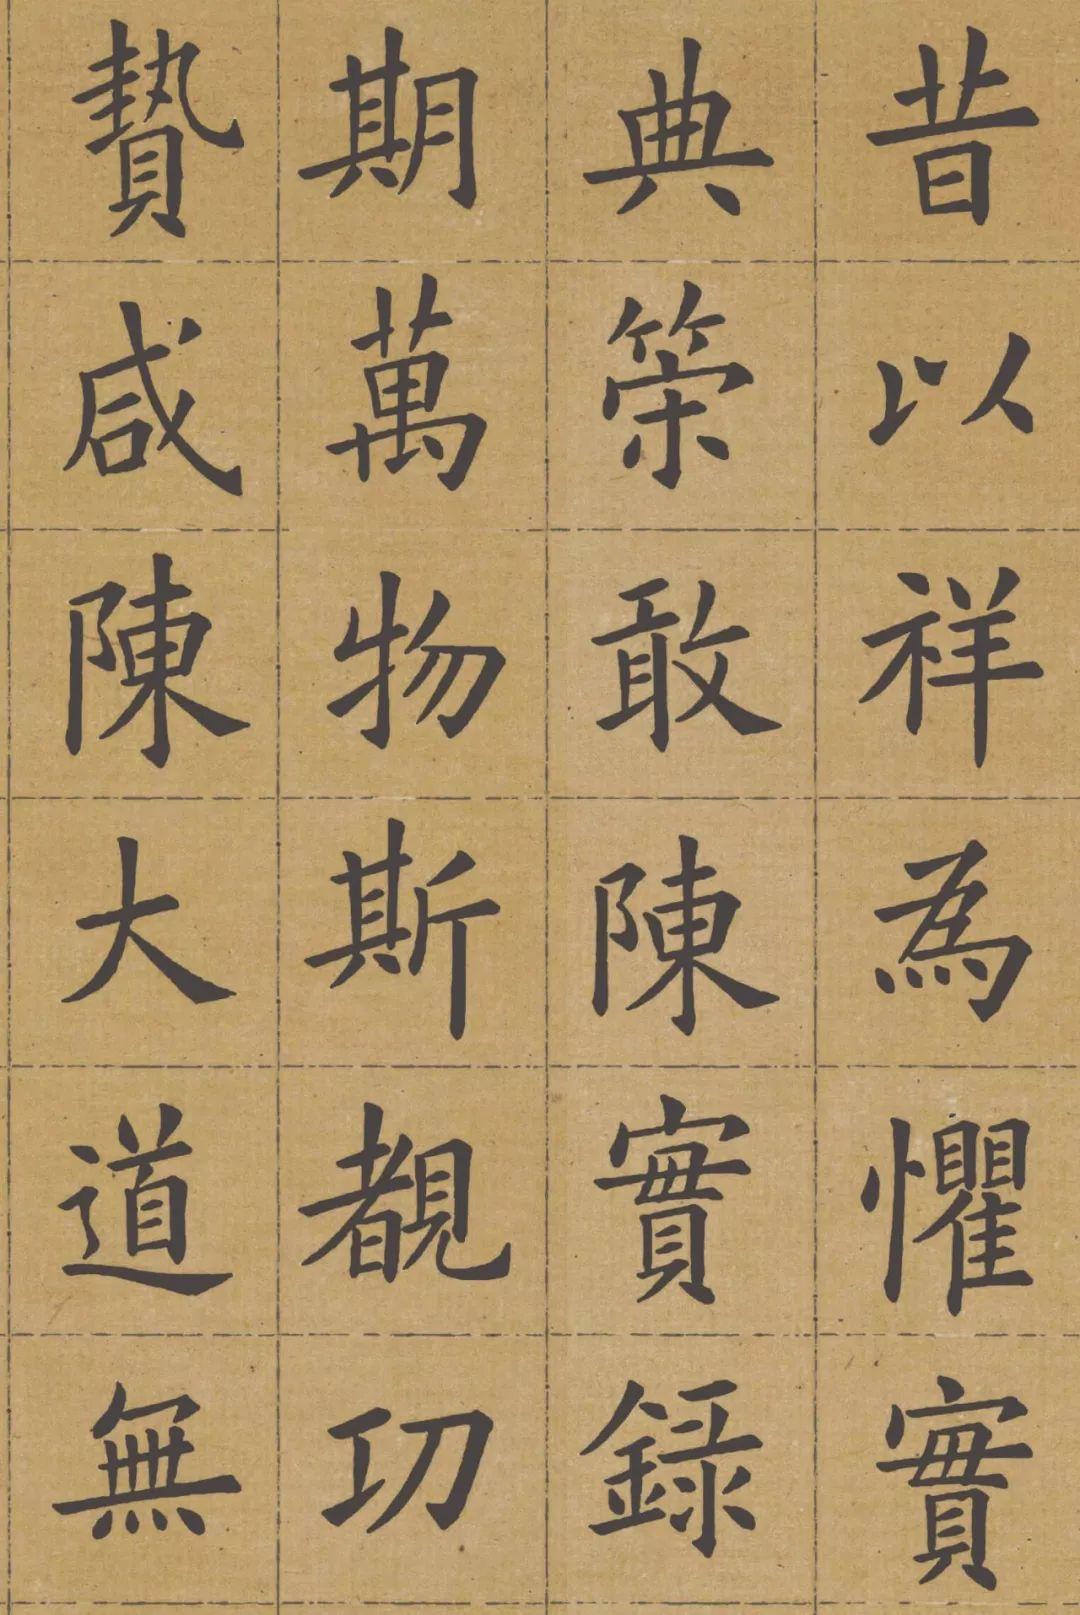 昔以祥為懼實
典策敢陳實錄
期萬物斯覩功
贄咸陳大道無